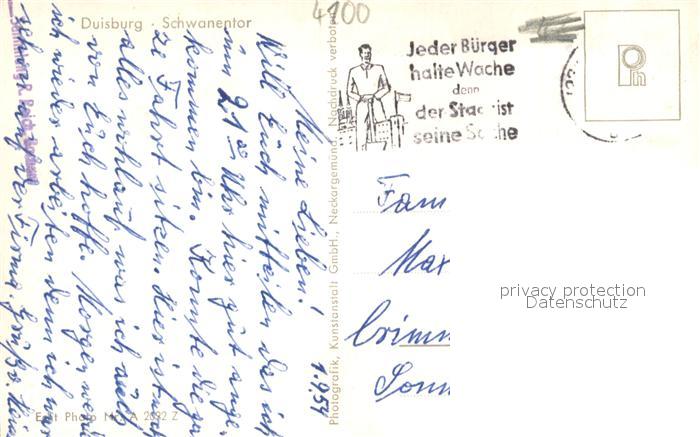 Duisburg · Schwanentor
4100
Jeder Bürger
halte Wache
denn
der Staat ist
seine Sache
Meine Lieben!
Will Euch mitteilen das ich
um 21 Uhr hier gut ange-
kommen bin. Konnte die gan-
ze Fahrt sitzen. Hier ist noch
alles wohlauf was ich auch
von Euch hoffe. Morgen werde
ich wieder arbeiten denn ich war
Firma. Grüße
1.9.54
Photografik, Kunstanstalt GmbH., Neckargemünd. Nachdruck verboten
Echt Photo Nr. A 2092 Z
Fam
Max
Crimm
Sonn
privacy protection
Datenschutz